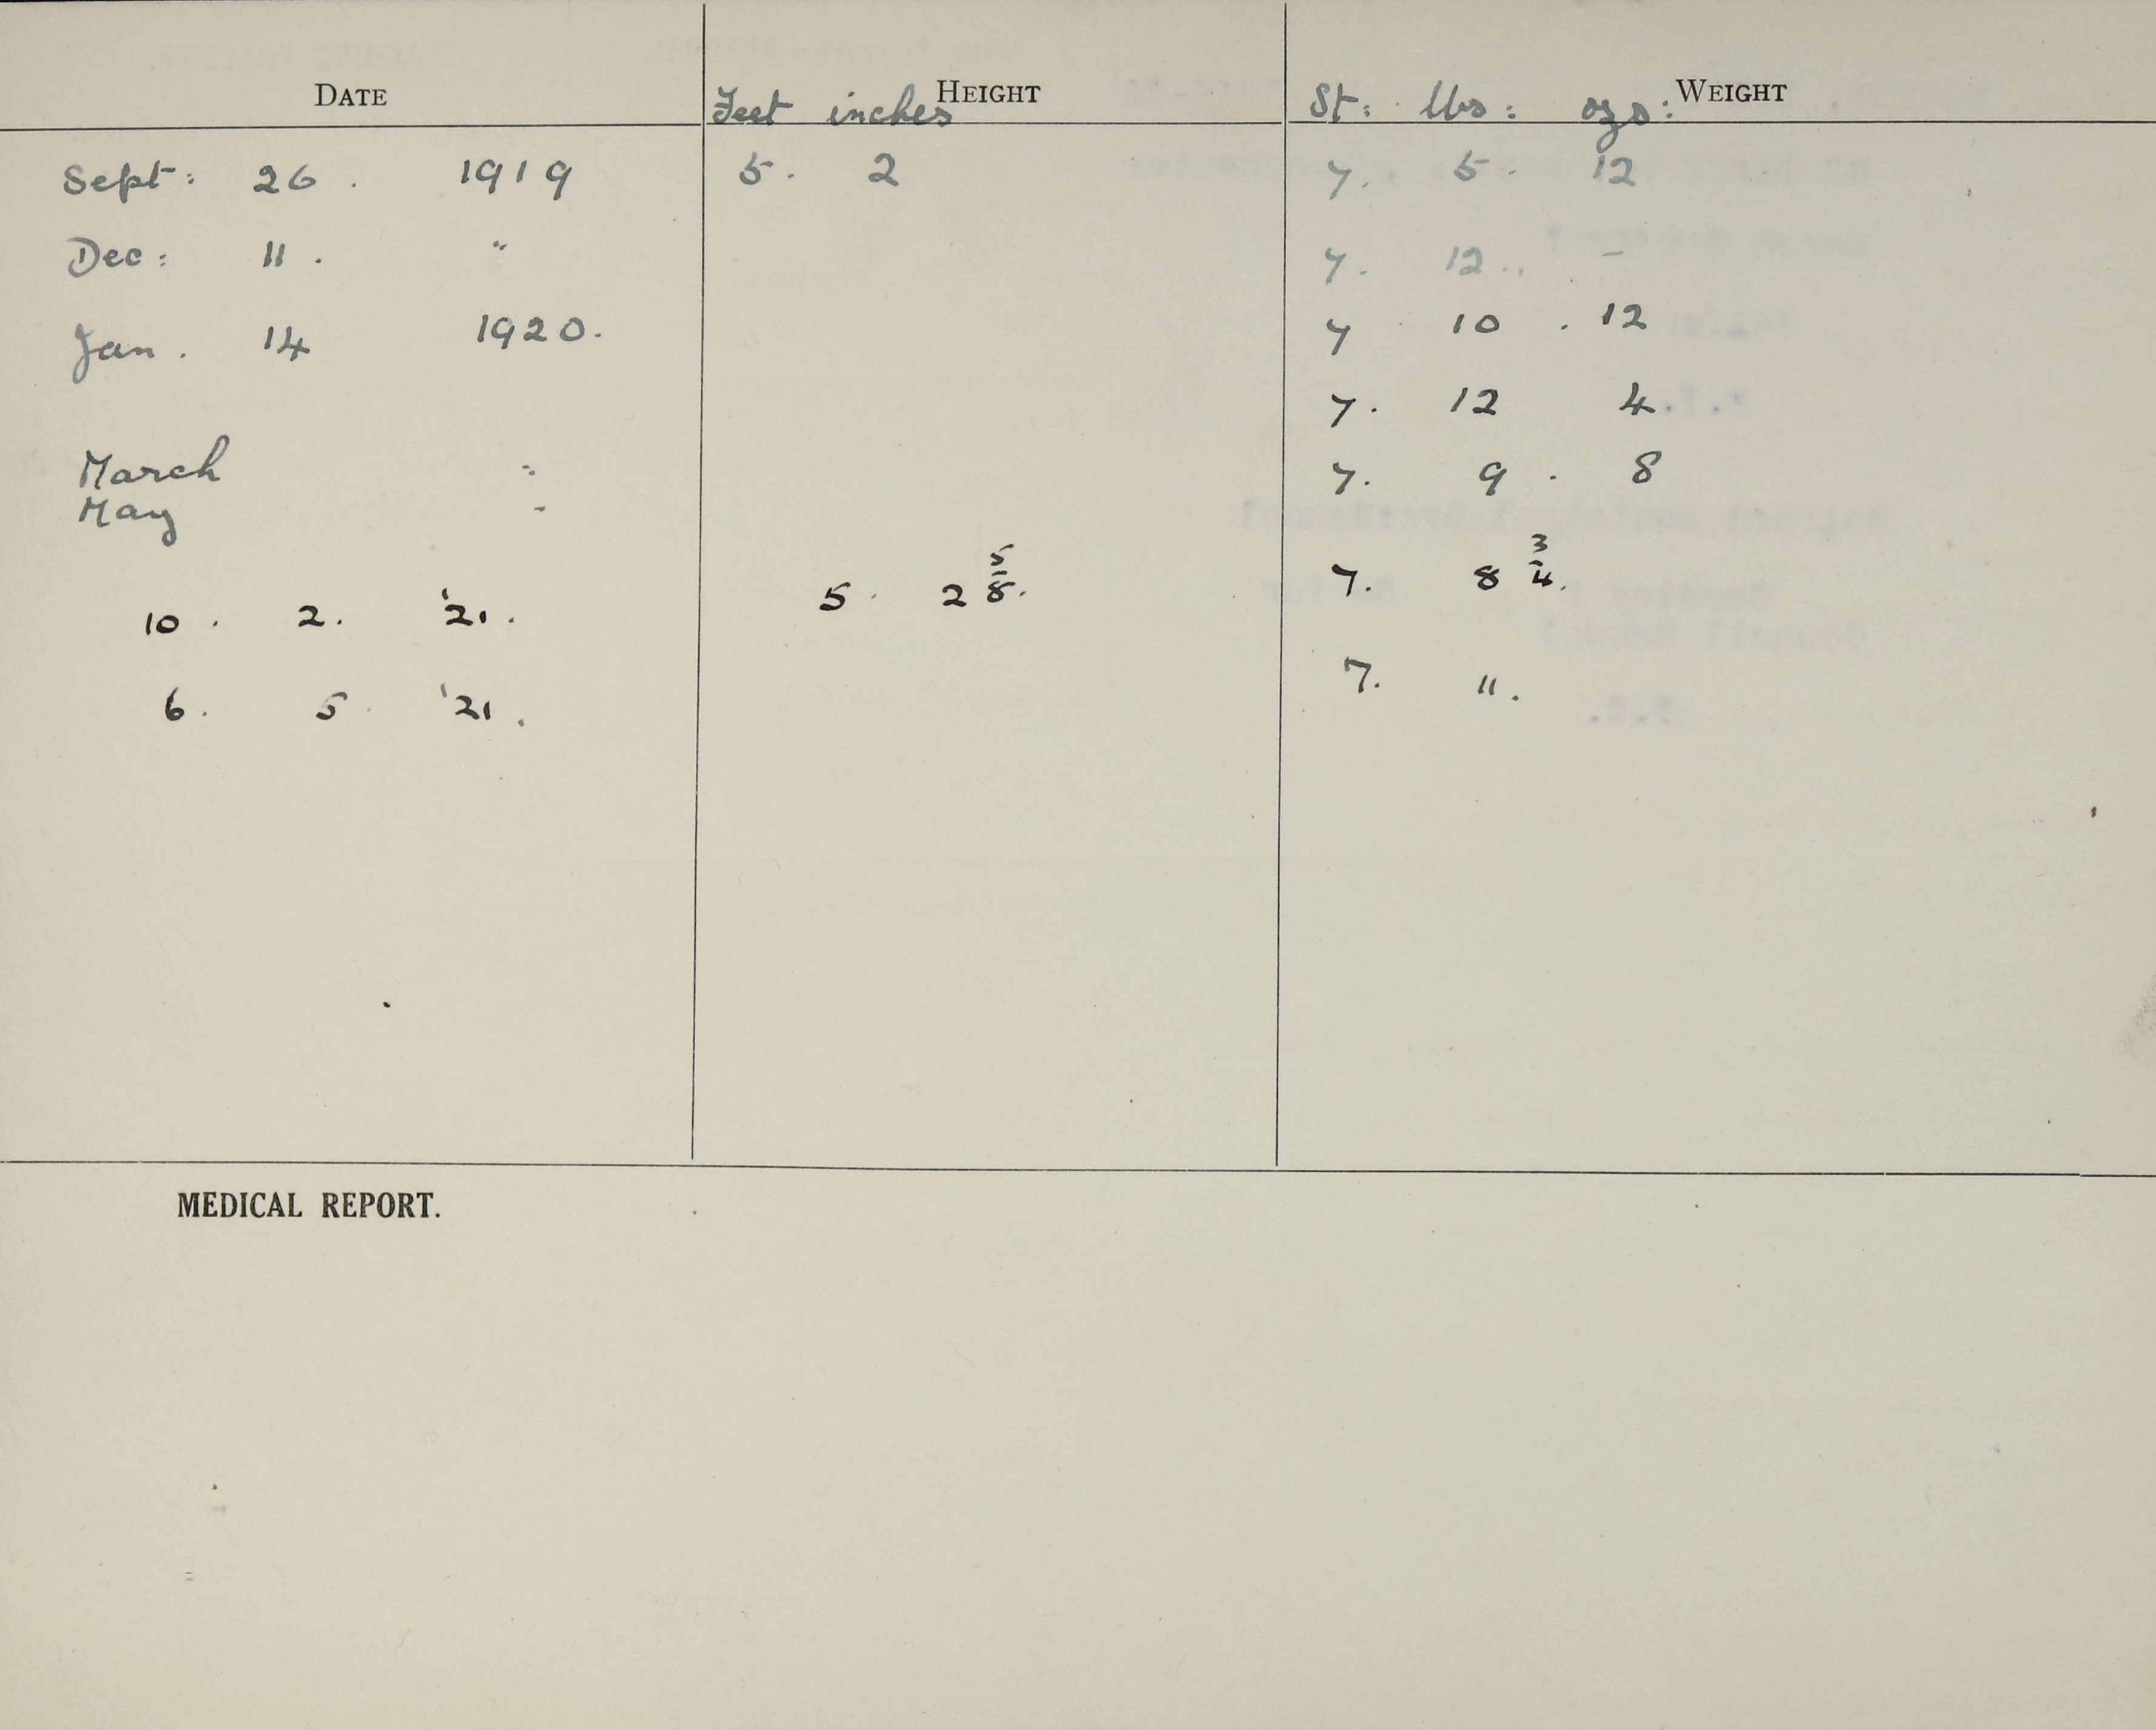 DATE Feet inches HEIGHT St: lbs: ozs: WEIGHT
Sept: 26. 1919 5. 2 7. 5. 12
Dec: 11. " 7. 12. -
Jan. 14 1920. 7 10. 12
7. 12 4
March " 7. 9. 8
May "
10. 2. '21. 5. 2 5/8. 7. 8 3/4.
6. 5. '21. 7. 11.
MEDICAL REPORT.